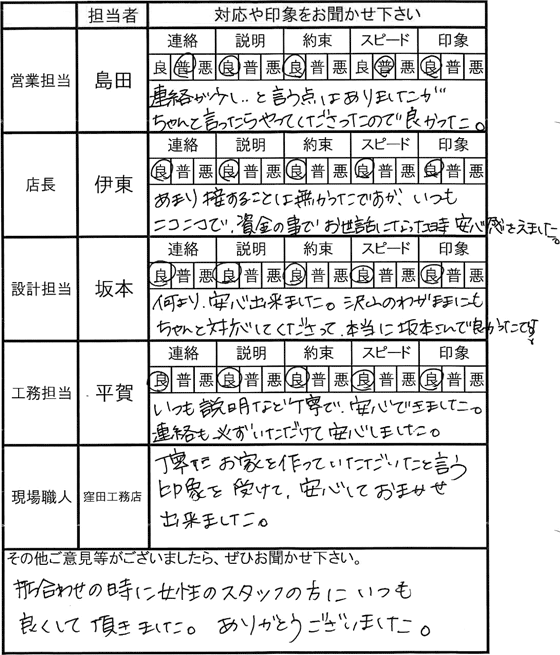 担当者 対応や印象をお聞かせ下さい
連絡 説明 約束 スピード 印象
営業担当 島田 良普悪 良普悪 良普悪 良普悪 良普悪
連絡が少し..と言う点はありましたが
ちゃんと言ったらやってくださったので良かった。
連絡 説明 約束 スピード 印象
店長 伊東 良普悪 良普悪 良普悪 良普悪 良普悪
あまり接することは無かったですが、いつも
ニコニコで、資金の事でお世話になった時安心感をえました。
連絡 説明 約束 スピード 印象
設計担当 坂本 良普悪 良普悪 良普悪 良普悪 良普悪
何より、安心出来ました。沢山のわがままにも
ちゃんと対応してくださって、本当に坂本さんで良かったです。
連絡 説明 約束 スピード 印象
工務担当 平賀 良普悪 良普悪 良普悪 良普悪 良普悪
いつも説明など丁寧で、安心できました。
連絡も必ずいただけて安心しました。
現場職人 窪田工務店
丁寧なお家を作っていただいたと言う
印象を受けて、安心しておまかせ
出来ました。
その他ご意見等がございましたら、ぜひお聞かせ下さい。
打合わせの時に女性のスタッフの方にいつも
良くして頂きました。ありがとうございました。